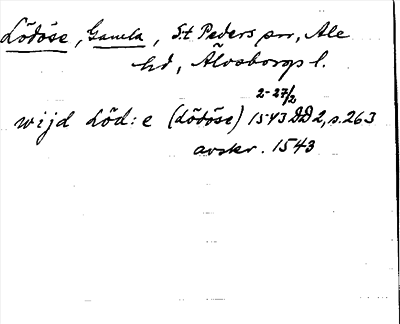 Lödöse, Gamla, S:t Peders sn, Ale
hd, Älvsborgs l.
2-27/2
wijd Löd:e (Lödöse) 1543 DD 2, s. 263
avskr. 1543